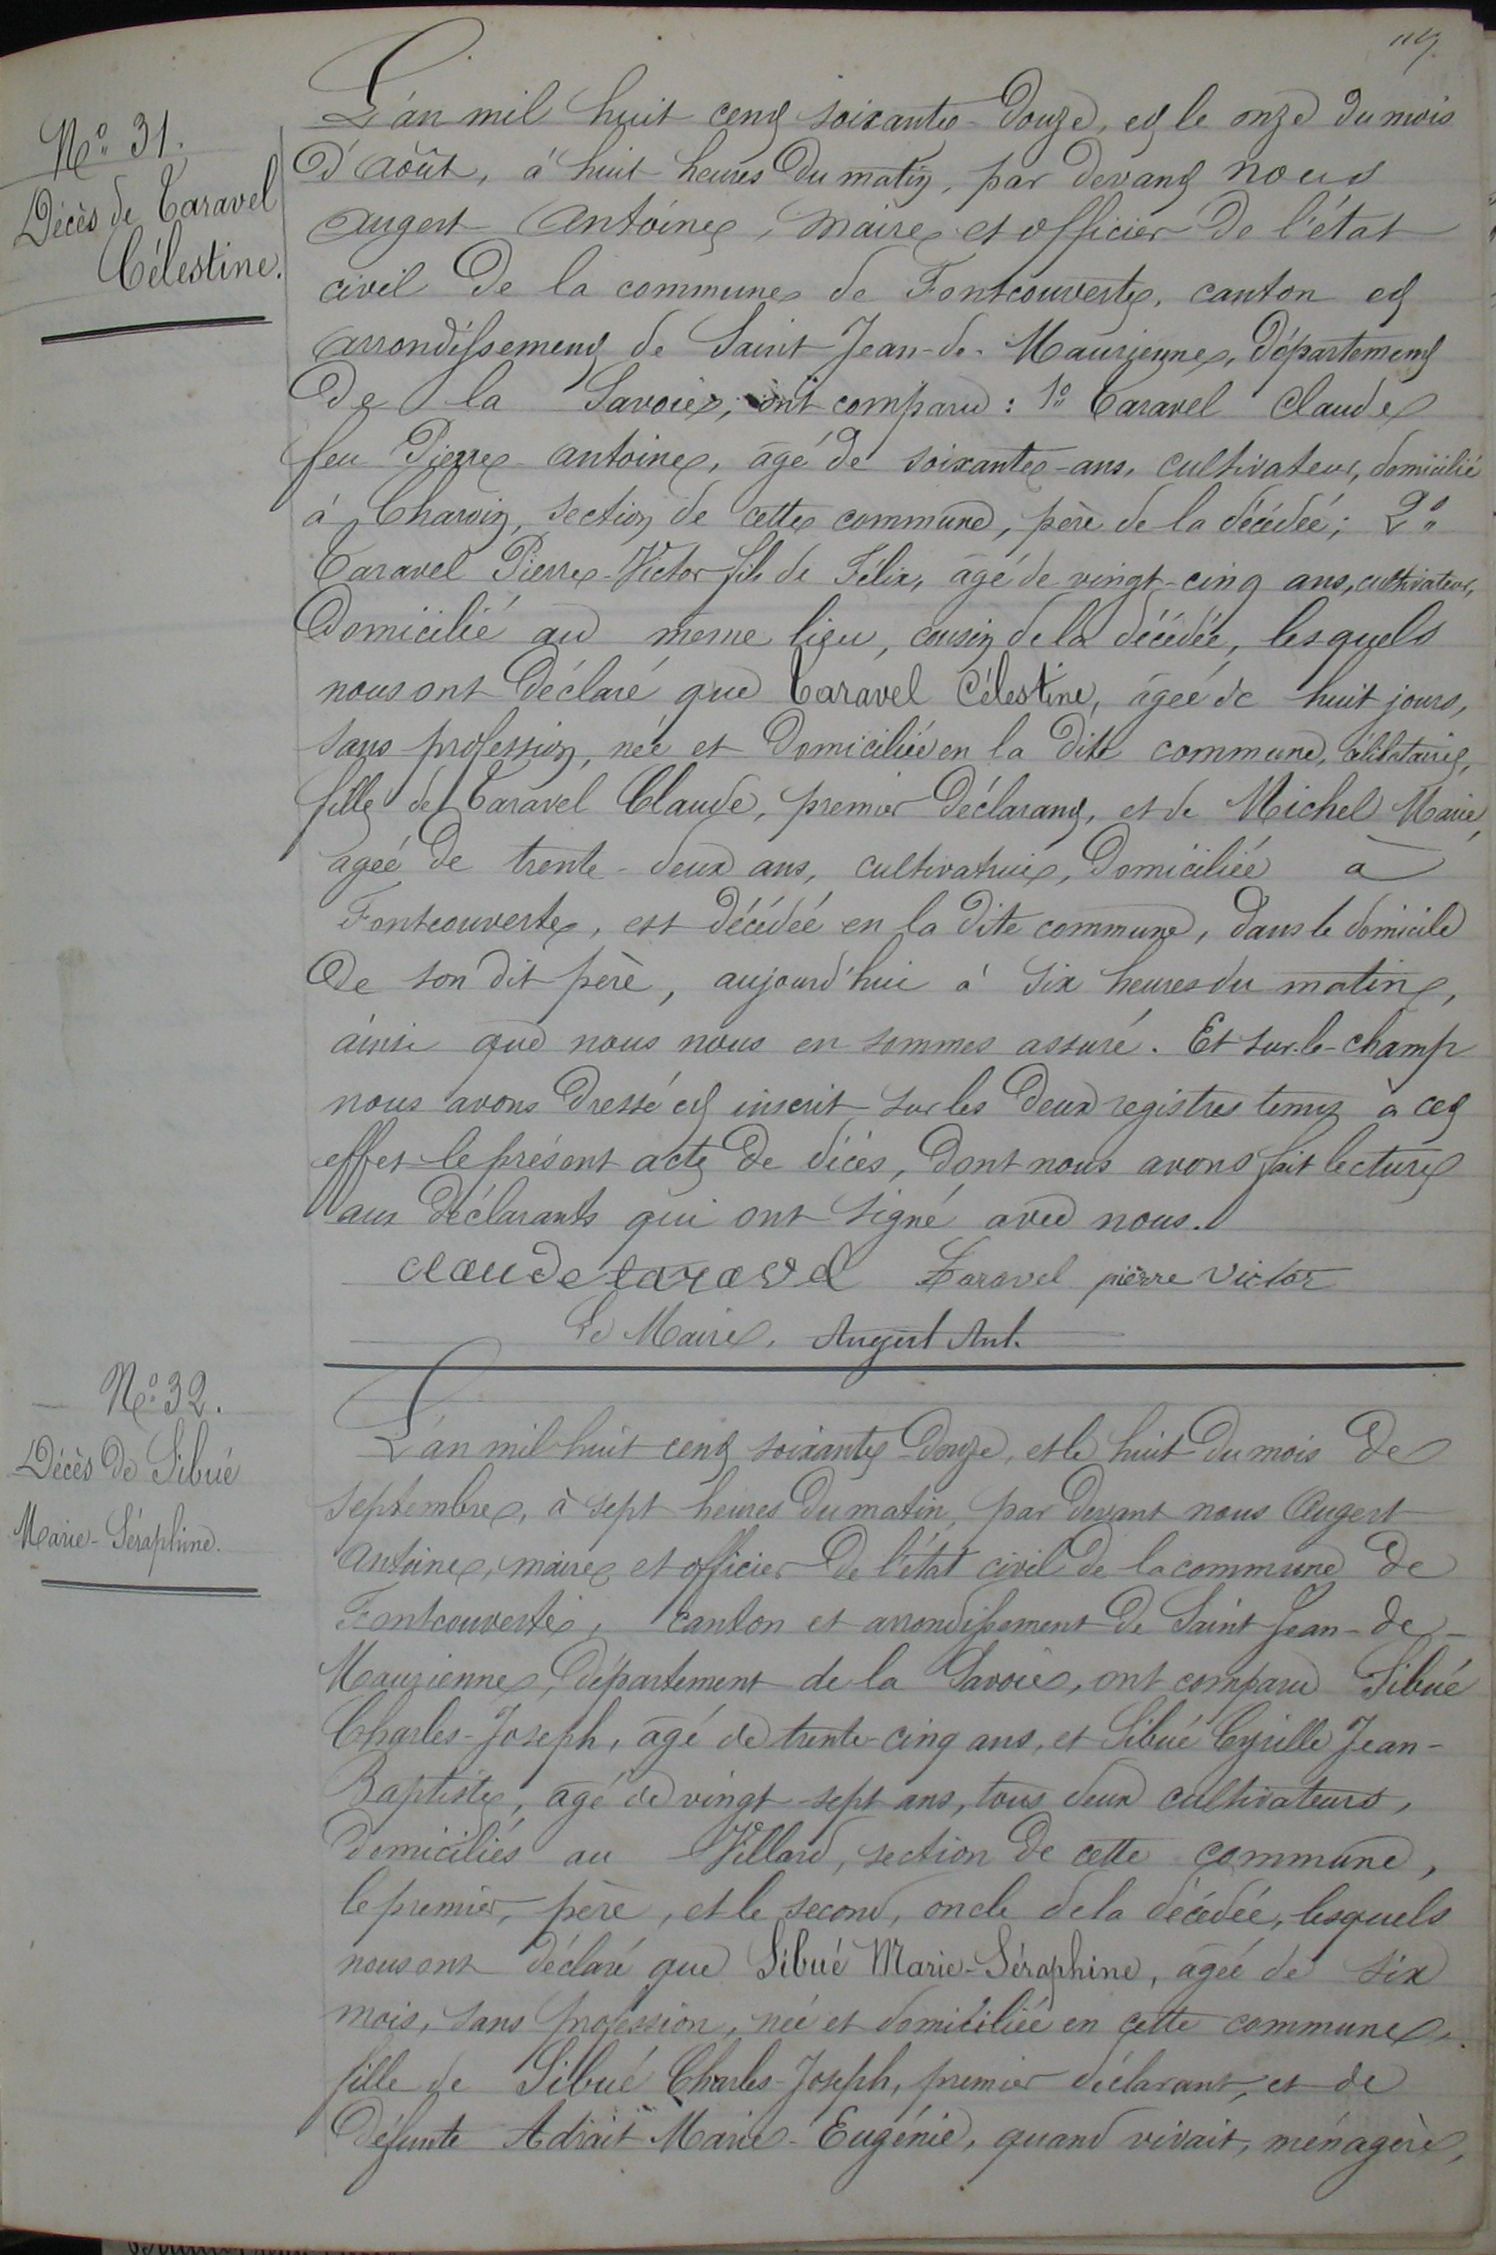 N° 31.
Décès de Taravel
Célestine.
L'an mil huit cent soixante-douze, et le onze du mois
d'août, à huit heures du matin, par devant nous
Augert Antoine, maire et officier de l'état
civil de la commune de Fontcouverte, canton et
arrondissement de Saint Jean-de-Maurienne, département
de la Savoie, ont comparu : 1° Taravel Claude
feu Pierre-Antoine, âgé de soixante-ans, cultivateur, domicilié
à Charvin, section de cette commune, père de la décédée; 2°
Taravel Pierre-Victor fils de Félix, âgé de vingt-cinq ans, cultivateur,
domicilié au même lieu, cousin de la décédée, lesquels
nous ont déclaré que Taravel Célestine, âgée de huit jours,
sans profession, née et domiciliée en la dite commune, célibataire,
fille de Taravel Claude, premier déclarant, et de Michel Marie,
agée de trente-deux ans, cultivatrice, domiciliée à
Fontcouverte, est décédée en la dite commune, dans le domicile
de son dit père, aujourd'hui à six heures du matin,
ainsi que nous nous en sommes assuré. Et sur-le-champ
nous avons dressé et inscrit sur les deux registres tenus à cet
effet le présent acte de décès, dont nous avons fait lecture
aux déclarants qui ont signé avec nous.
Claude taravel Taravel pierre Victor
Le Maire, Augert Ant.
N° 32.
Décès de Sibué
Marie-Séraphine.
L'an mil huit cent soixante-douze, et le huit du mois de
septembre, à sept heures du matin, par devant nous Augert
Antoine, maire et officier de l'état civil de la commune de
Fontcouverte, canton et arrondissement de Saint Jean-de-
Maurienne, département de la Savoie, ont comparu Sibué
Charles-Joseph, âgé de trente-cinq ans, et Sibué Cyrille Jean-
Baptiste, âgé de vingt-sept ans, tous deux cultivateurs,
domiciliés au Villard, section de cette commune,
le premier, père, et le second, oncle de la décédée, lesquels
nous ont déclaré que Sibué Marie-Séraphine, âgée de six
mois, sans profession, née et domiciliée en cette commune,
fille de Sibué Charles-Joseph, premier déclarant, et de
défunte Adrait Marie-Eugénie, quand vivait, ménagère,